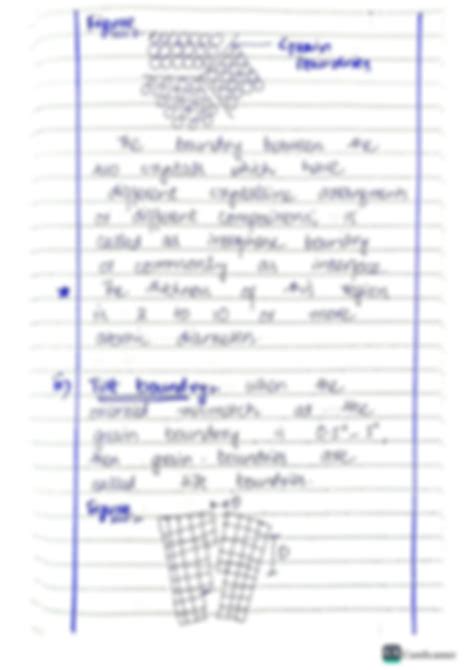 Figure
Grain
boundries
The boundry between the
two crystals which have
different crystalline arrangment
or different compositions, is
called as interphase boundry
or commonly as interface.
The thickness of this region
is 2 to 10 or more
atomic diameters.
ii) Tilt boundry. When the
mismatch at the
grain boundry is
then grain boundries are
called tilt boundries.
Figure
θ
D
CamScanner